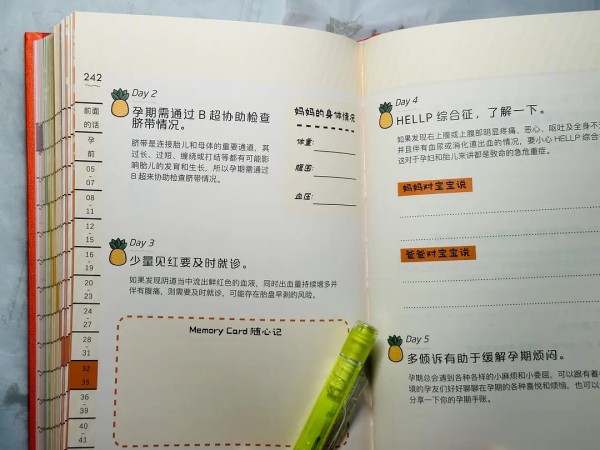 242
前面
的话
孕
前
05
-
07
08
-
11
12
-
15
16
-
19
20
-
23
24
-
27
28
-
31
32
-
35
36
-
39
40
-
41
Day 2
孕期需通过 B 超协助检查
脐带情况。
脐带是连接胎儿和母体的重要通道，其
过长、过短、缠绕或打结等都有可能影
响胎儿的发育和生长，所以孕期需通过
B 超来协助检查脐带情况。
妈妈的身体情况
体重：
腹围：
血压：
Day 3
少量见红要及时就诊。
如果发现阴道当中流出鲜红色的血液，同时出血量持续增多并
伴有腹痛，则需要及时就诊，可能存在胎盘早剥的风险。
Memory Card 随心记
Day 4
HELLP 综合征，了解一下。
如果发现右上腹或上腹部明显疼痛、恶心、呕吐及全身不
并且伴有血尿或消化道出血的情况，要小心 HELLP 综合
这对于孕妇和胎儿来讲都是致命的急危重症。
妈妈对宝宝说
爸爸对宝宝说
Day 5
多倾诉有助于缓解孕期烦闷。
孕期总会遇到各种各样的小麻烦和小委屈，可以跟有着
境的孕友们好好聊聊在孕期的各种喜悦和烦恼，也可以
分享一下你的孕期手账。